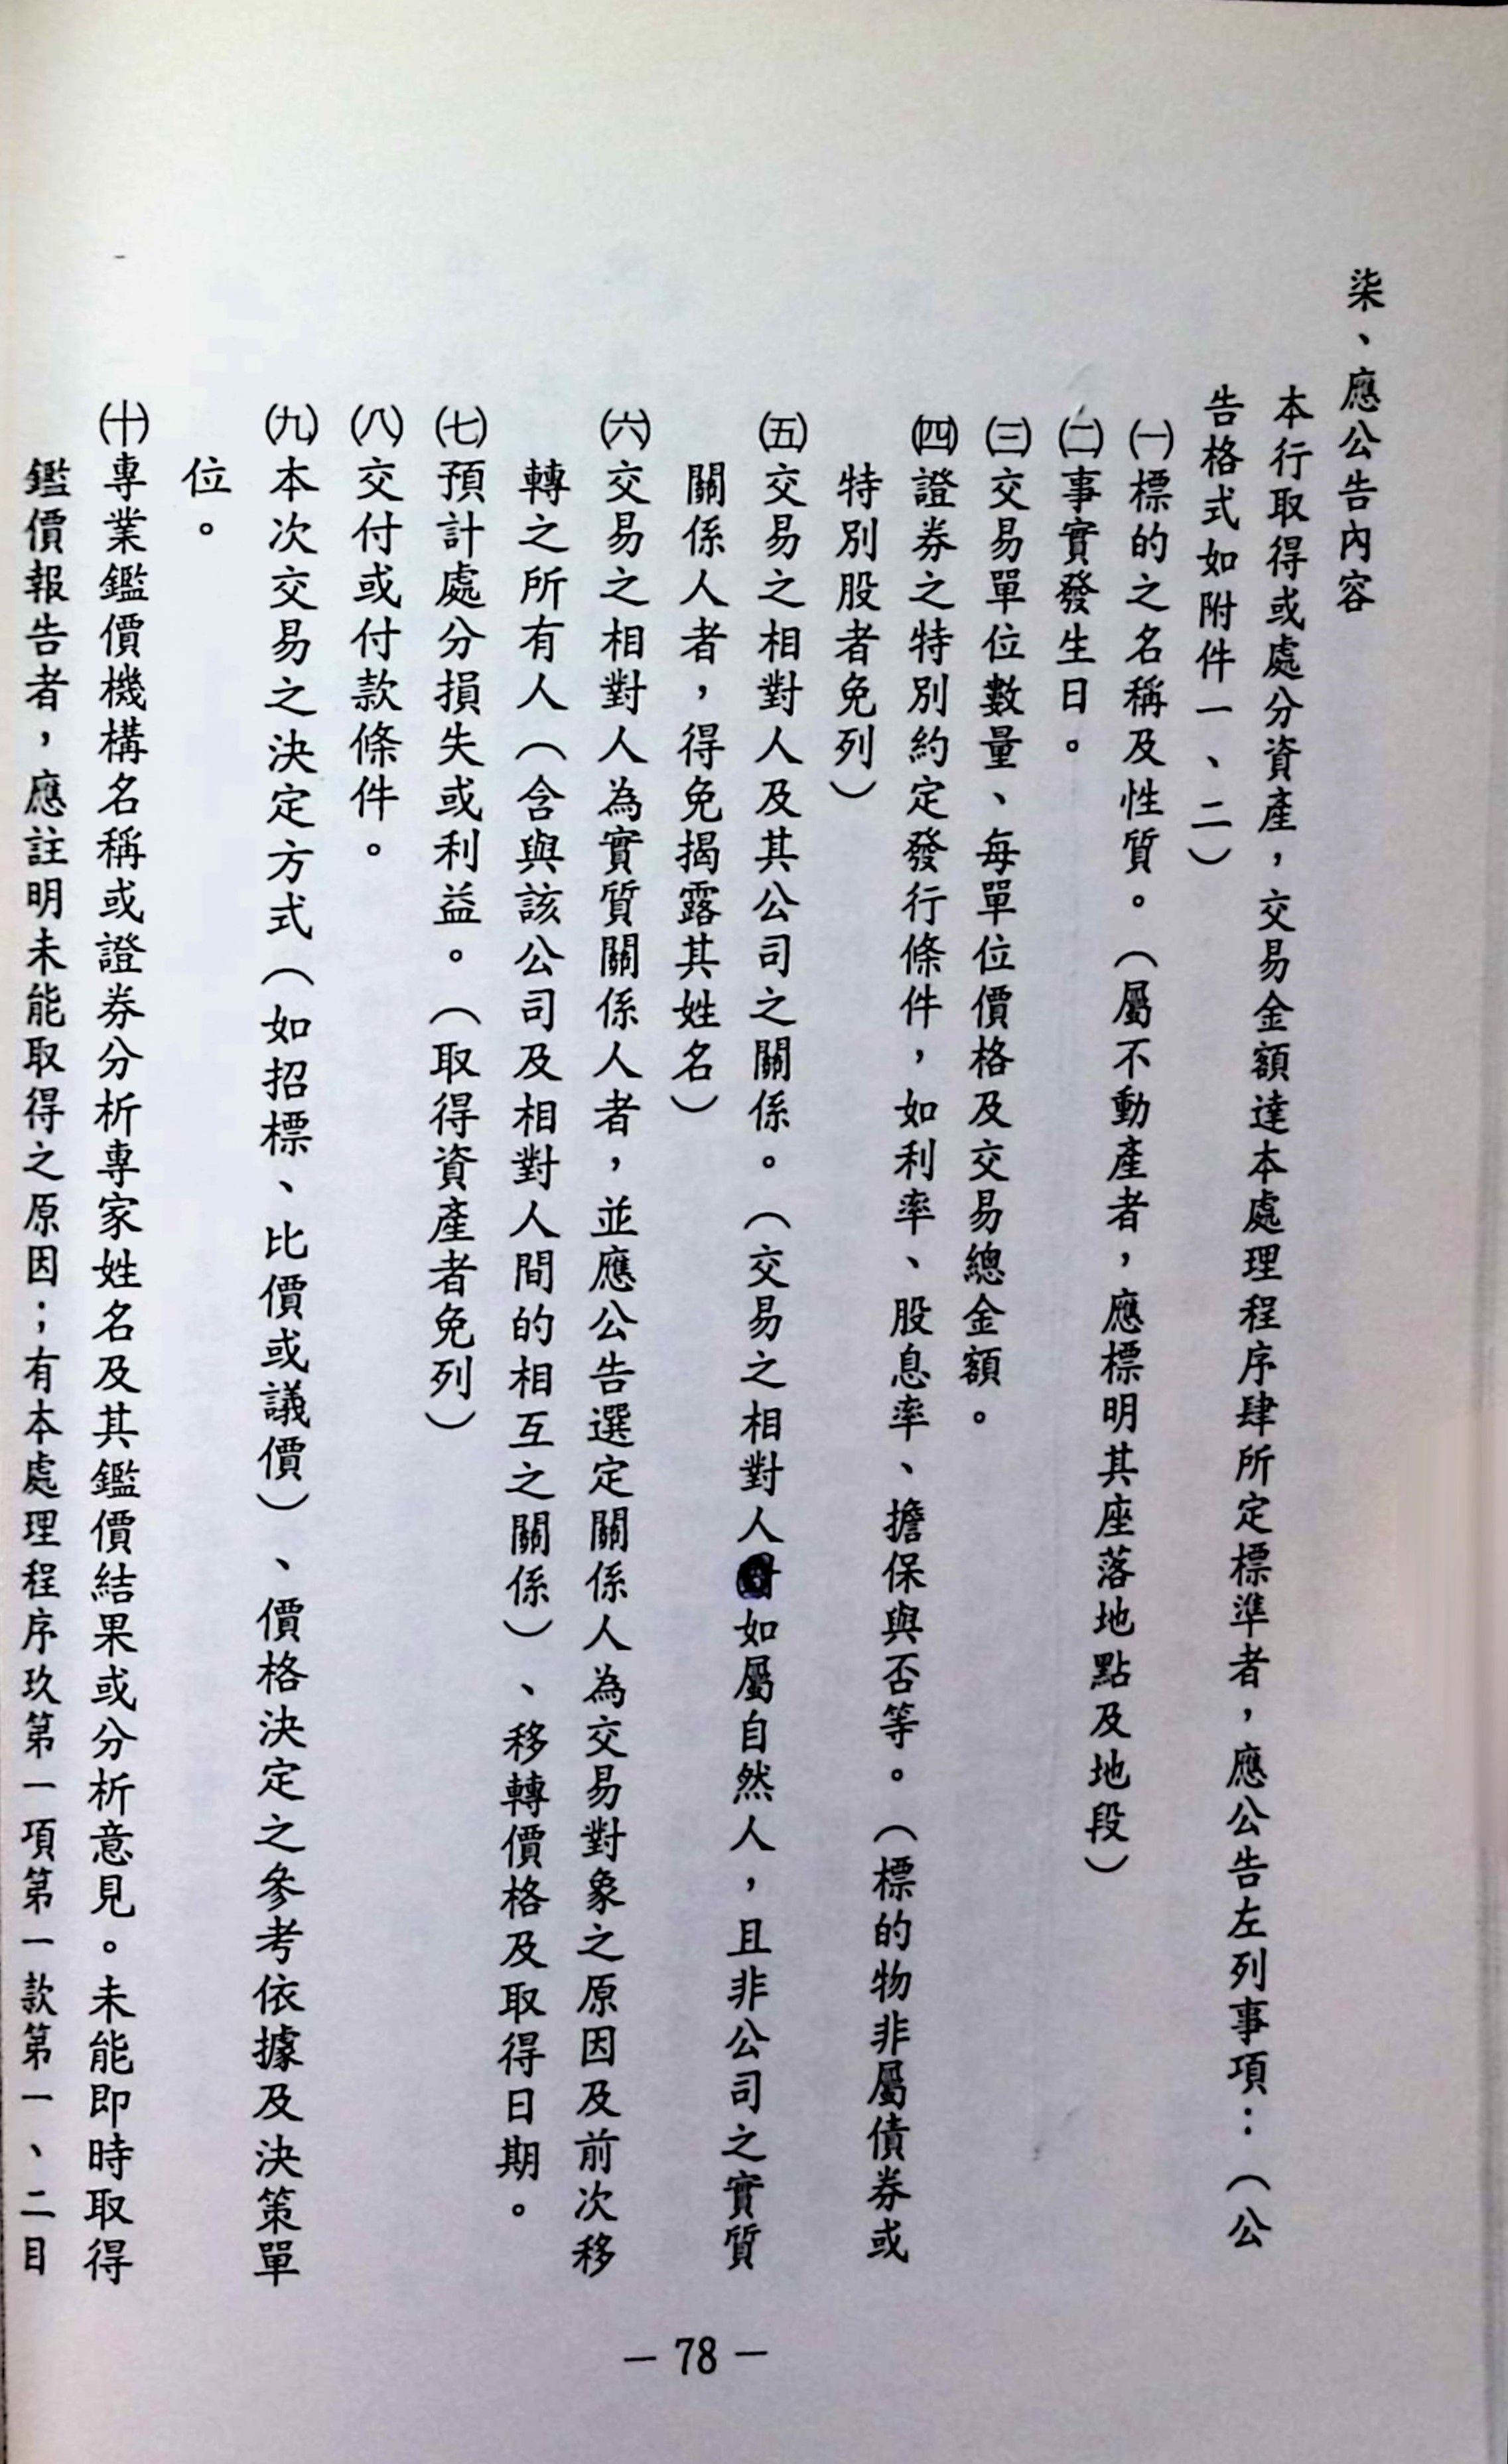 柒、應公告內容
本行取得或處分資產，交易金額達本處理程序肆所定標準者，應公告左列事項：（公
告格式如附件一、二）
㈠標的之名稱及性質。（屬不動產者，應標明其座落地點及地段）
㈡事實發生日。
㈢交易單位數量、每單位價格及交易總金額。
㈣證券之特別約定發行條件，如利率、股息率、擔保與否等。（標的物非屬債券或
特別股者免列）
㈤交易之相對人及其公司之關係。（交易之相對人如屬自然人，且非公司之實質
關係人者，得免揭露其姓名）
㈥交易之相對人為實質關係人者，並應公告選定關係人為交易對象之原因及前次移
轉之所有人（含與該公司及相對人間的相互之關係）、移轉價格及取得日期。
㈦預計處分損失或利益。（取得資產者免列）
㈧交付或付款條件。
㈨本次交易之決定方式（如招標、比價或議價）、價格決定之參考依據及決策單
位。
㈩專業鑑價機構名稱或證券分析專家姓名及其鑑價結果或分析意見。未能即時取得
鑑價報告者，應註明未能取得之原因；有本處理程序玖第一項第一款第一、二目
－78－